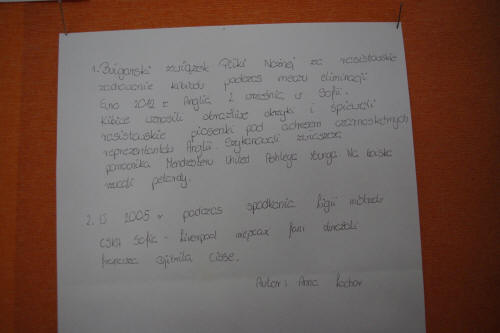 1. Bułgarski związek Piłki Nożnej za rasistowskie
zachowanie kibiców podczas meczu eliminacji
Euro 2012 z Anglią 2 września w Sofii.
Kibice wznosili obraźliwe okrzyki i śpiewali
rasistowskie piosenki pod adresem czarnoskórych
reprezentantów Anglii. Szykanowali zwłaszcza
pomocnika Manchesteru United Ashleya Younga. Na boisko
rzucali petardy.
2. W 2005 r podczas spotkania Ligii mistrzów
CSKA Sofia - Liverpool miejscowi fani obrażali
francuza Djibrila Cisse.
Autor: Anna